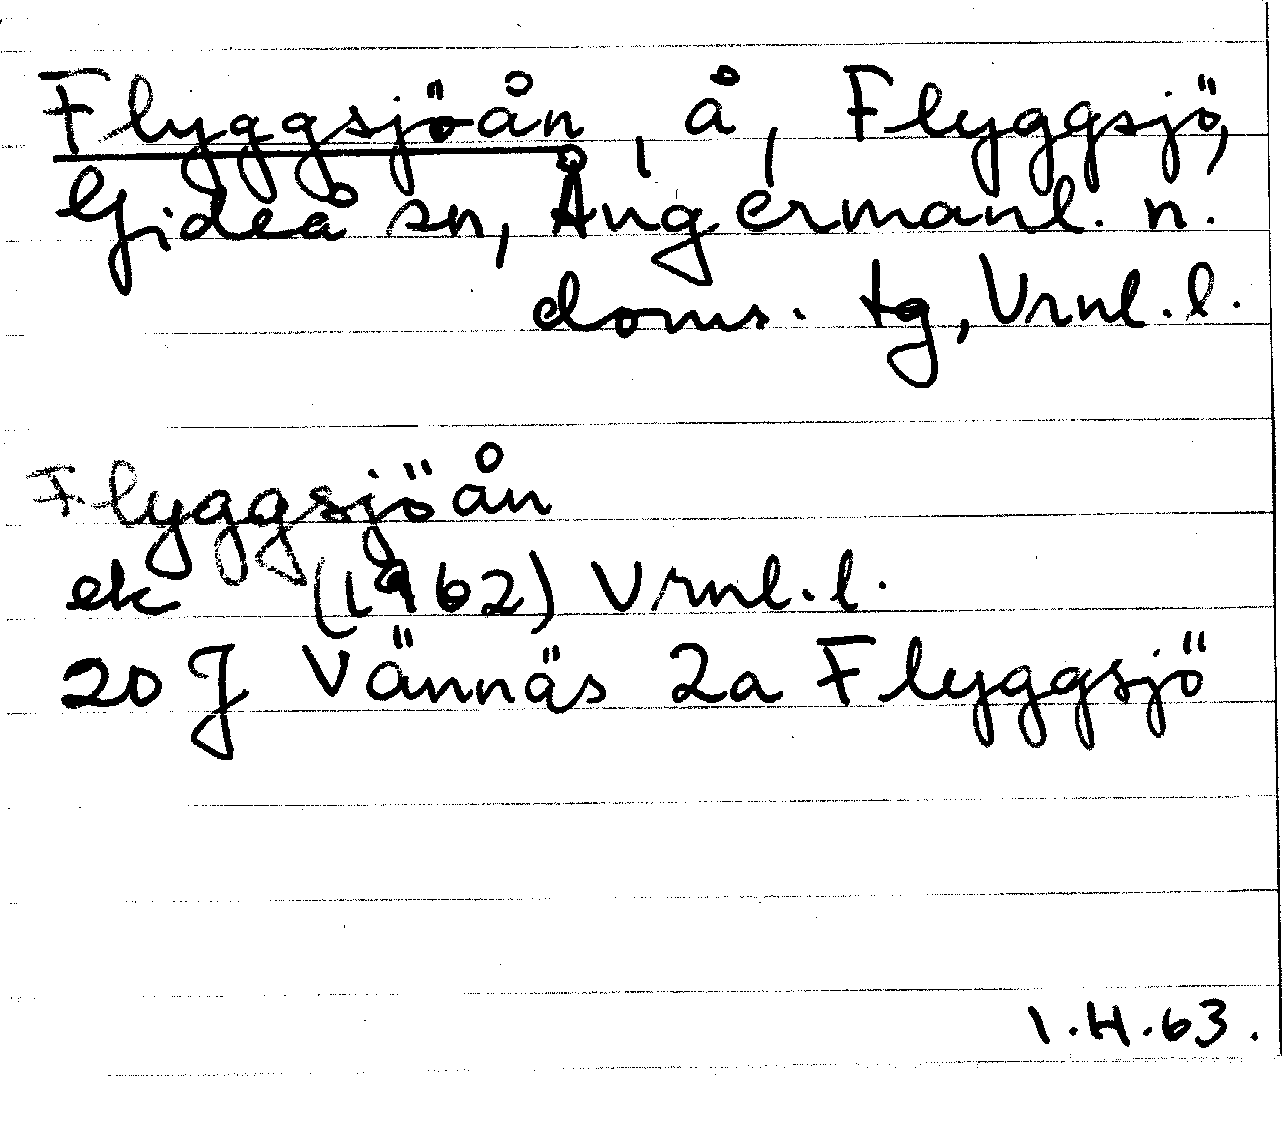 Flyggsjöån, å, Flyggsjö,
Gideå sn, Ångermanl. n.
doms. tg, Vrnl. l.
Flyggsjöån
ek (1962) Vrnl. l.
20 J Vännäs 2a Flyggsjö
I.H.63.